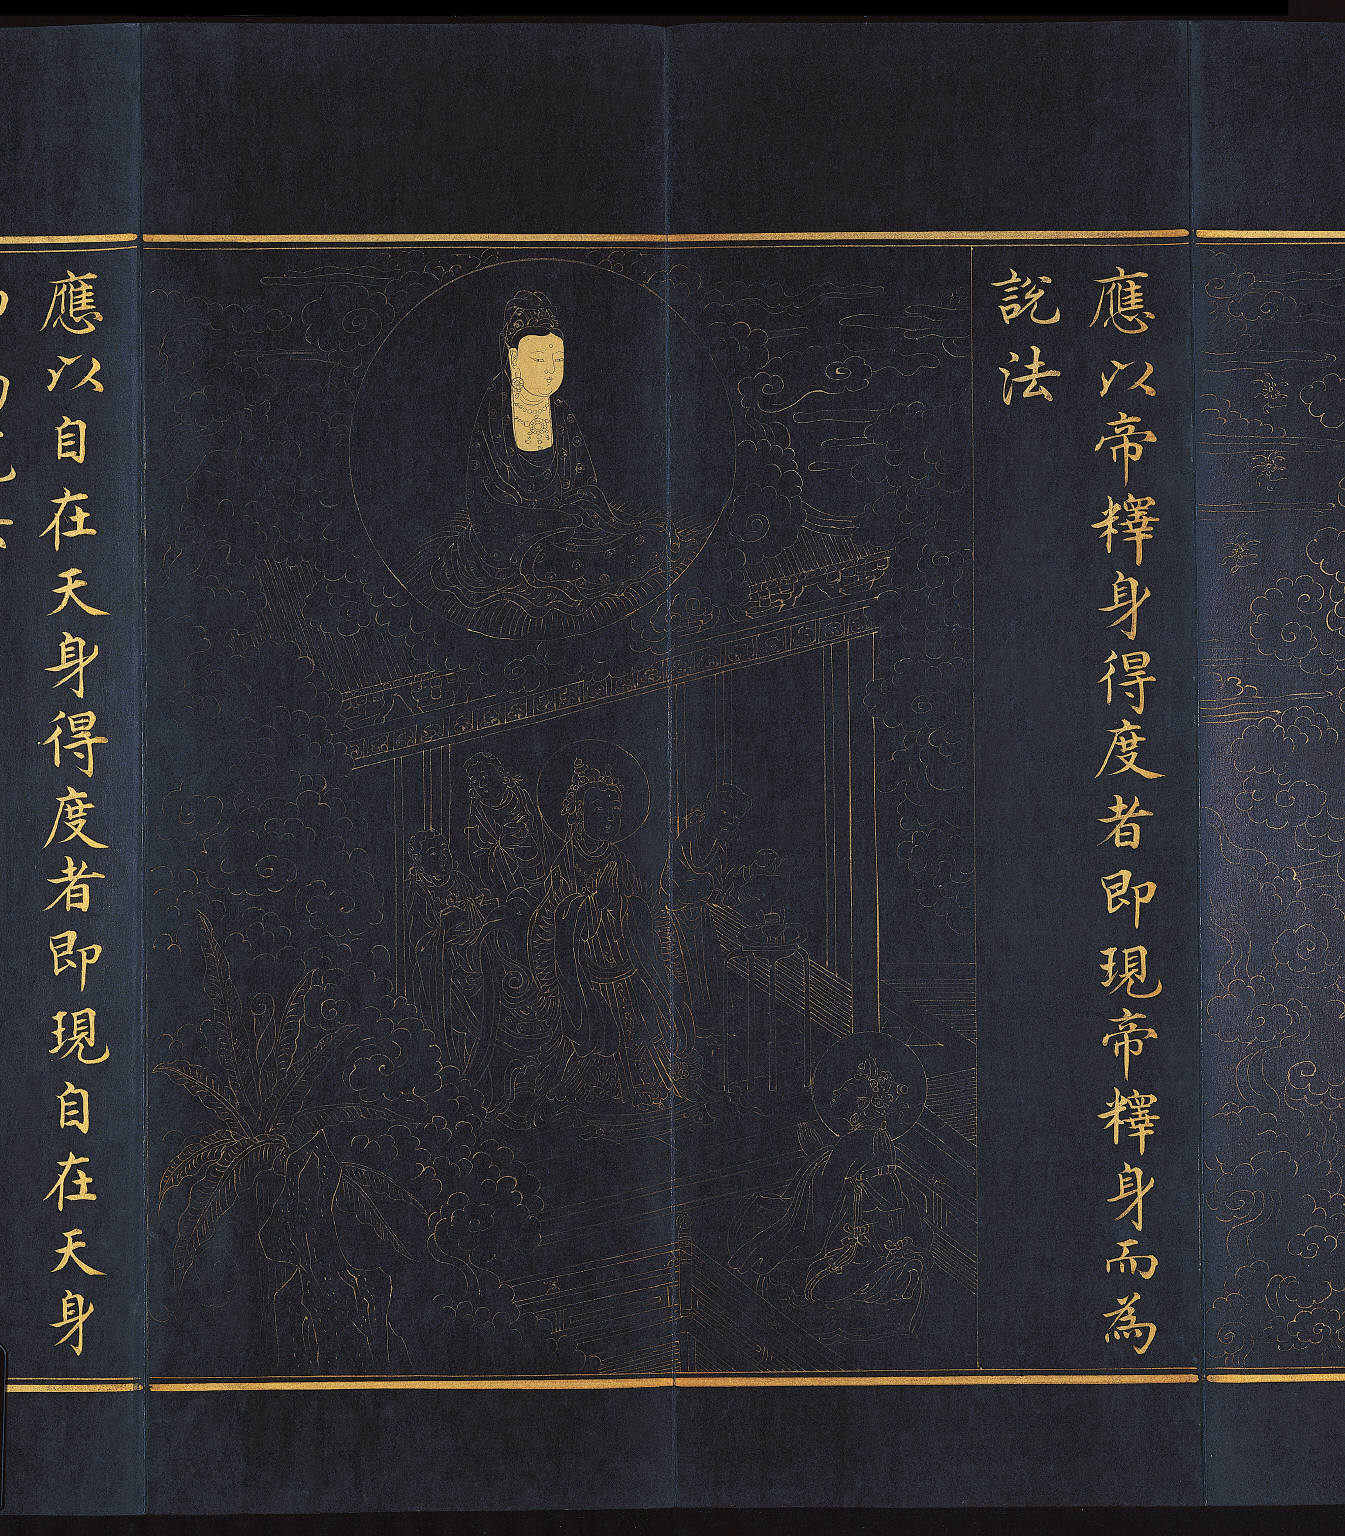 應以帝釋身得度者即現帝釋身而為
說法
應以自在天身得度者即現自在天身